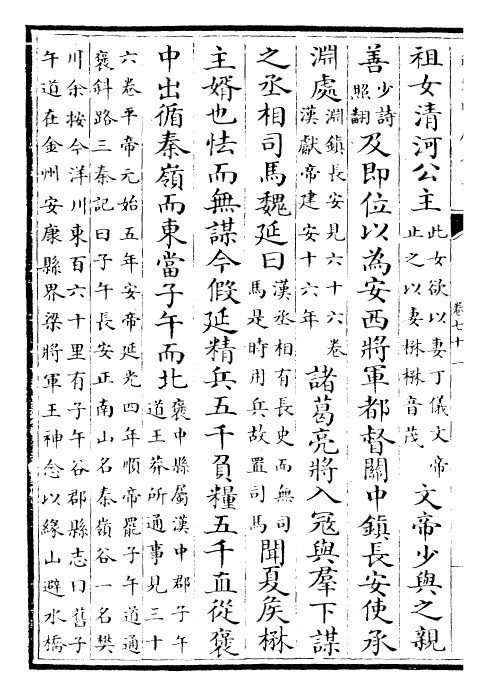 祖女清河公主此女欲以妻丁儀文帝止之以妻楙楙音茂文帝少與之親
善少詩照翻及即位以為安西將軍都督關中鎮長安使承
淵處淵鎮長安見六十六卷漢獻帝建安十六年諸葛亮將入冦與羣下謀
之丞相司馬魏延曰漢丞相有長史而無司馬是時用兵故置司馬聞夏矦楙
主婿也怯而無謀今假延精兵五千負糧五千直從褒
中出循秦嶺而東當子午而北褒中縣屬漢中郡子午道王莽所通事見三十
六卷平帝元始五年安帝延光四年順帝罷子午道通
褒斜路三秦記曰子午長安正南山名秦嶺谷一名樊
川余按今洋川東百六十里有子午谷郡縣志曰舊子
午道在金州安康縣界梁將軍王神念以緣山避水橋
卷七十一